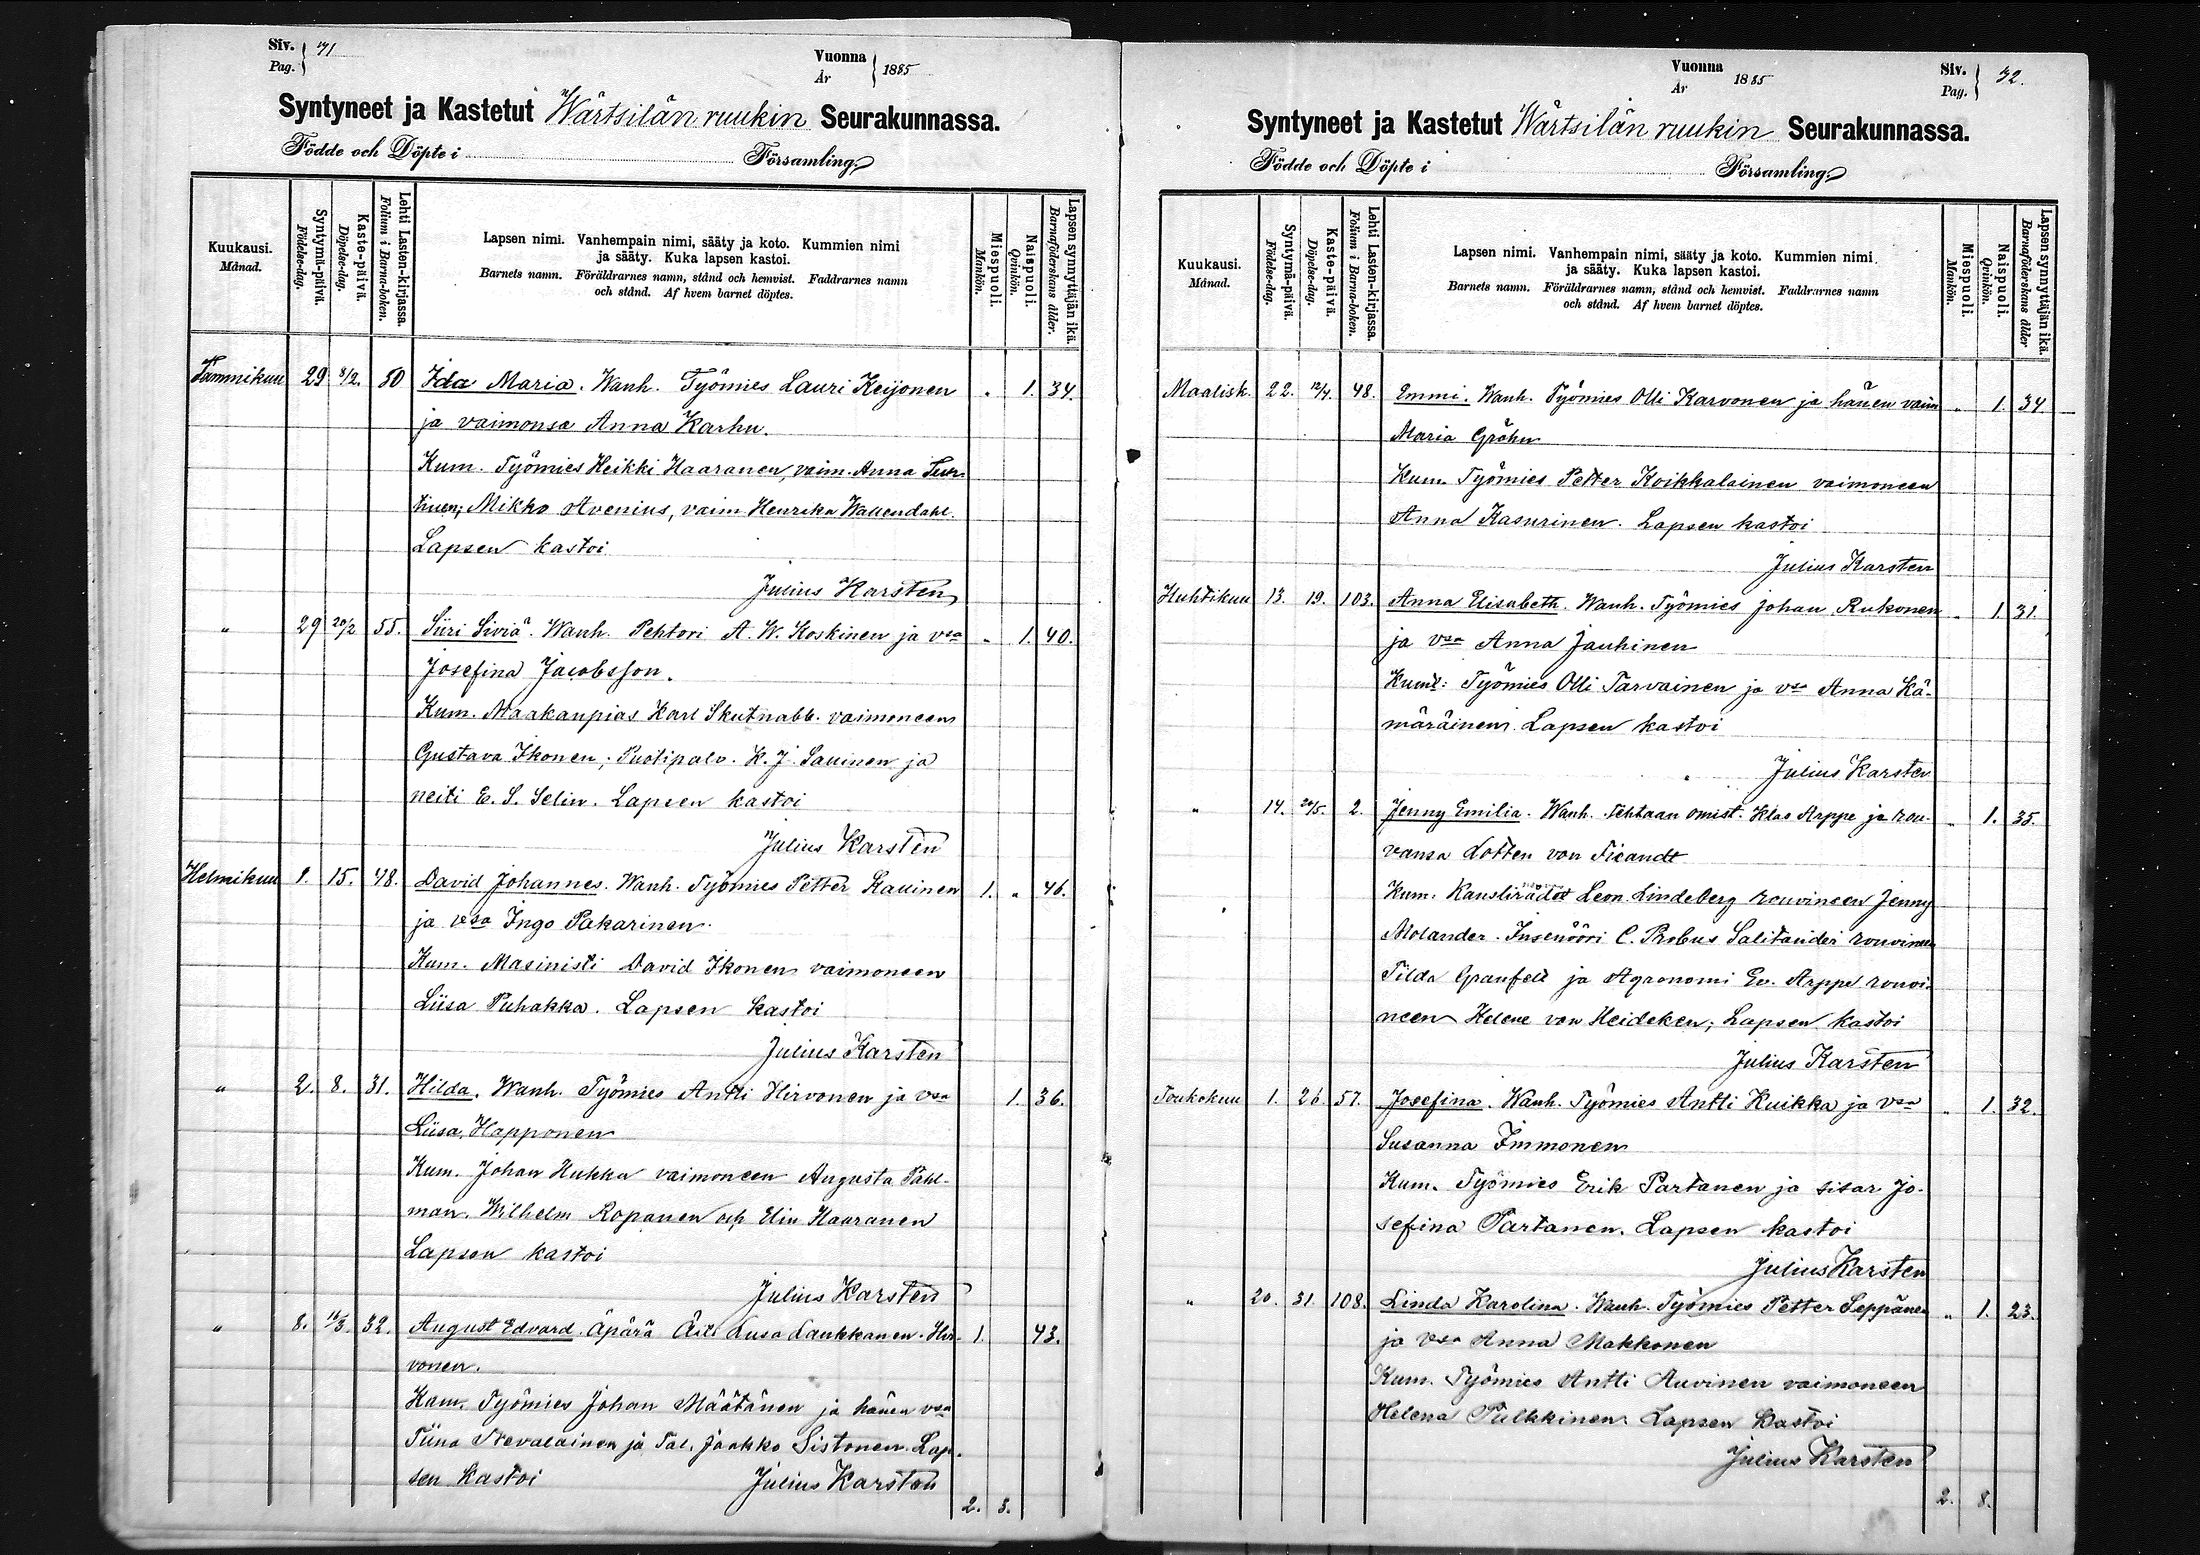 Siv. 71
Pag.
Vuonna 1885
År
Syntyneet ja Kastetut Wärtsilän ruukin Seurakunnassa.
Födde och Döpte i Församling
Kuukausi.
Månad.
Syntymä-päivä.
Födelse-dag.
Kaste-päivä.
Döpelse-dag.
Lehti Lasten-kirjassa.
Folium i Barna-boken.
Lapsen nimi. Vanhempain nimi, sääty ja koto. Kummien nimi
ja sääty. Kuka lapsen kastoi.
Barnets namn. Föräldrarnes namn, stånd och hemvist. Faddrarnes namn
och stånd. Af hvem barnet döptes.
Miespuoli.
Mankön.
Naispuoli.
Qvinkön.
Lapsen synnyttäjän ikä.
Barnaföderskans ålder.
Tammikuu 29 8/2. 50 Ida Maria. Wanh. Työmies Lauri Keijonen " 1. 34.
ja vaimonsa Anna Karhu.
Kum. Työmies Heikki Haaranen, vaim. Anna
Mikko Avenius, vaim Henrika Wallendahl.
Lapsen kastoi
Julius Karsten
" 29 20/2 55. Siiri Siviä. Wanh. Pehtori A. W. Koskinen ja vsa " 1. 40.
Josefina Jacobsson.
Kum. Maakaupias Karl Skutnabb. vaimoneen
Gustava Ikonen; Puotipalv. K. J. Sauinen ja
neiti E. S. Selin. Lapsen kastoi
Julius Karsten
Helmikuu 1. 15. 48. David Johannes. Wanh. Työmies Petter Rauinen 1. " 46.
ja vsa Ingo Pakarinen.
Kum. Masinisti David Ikonen vaimoneen
Liisa Puhakka. Lapsen kastoi
Julius Karsten
" 2. 8. 31. Hilda. Wanh. Työmies Antti Hirvonen ja vsa 1. 36.
Liisa Happonen
Kum. Johan Hukka vaimoneen Augusta Påhl-
man. Wilhelm Ropanen och Elin Haaranen
Lapsen kastoi
Julius Karsten
" 8. 32. August Edvard. Äpärä Äiti Lusa Laukkanen. Hir- 1. 43.
vonen.
Kum. Työmies Johan Määtänen ja hänen vsa
Tiina Nevalainen ja Tal. Jaakko Sistonen. Lap-
sen kastoi Julius Karsten
2. 3.
Vuonna 1885
År
Siv. 72.
Pag.
Syntyneet ja Kastetut Wärtsilän ruukin Seurakunnassa.
Födde och Döpte i Församling
Kuukausi.
Månad.
Syntymä-päivä.
Födelse-dag.
Kaste-päivä.
Döpelse-dag.
Lehti Lasten-kirjassa.
Folium i Barna-boken.
Lapsen nimi. Vanhempain nimi, sääty ja koto. Kummien nimi
ja sääty. Kuka lapsen kastoi.
Barnets namn. Föräldrarnes namn, stånd och hemvist. Faddrarnes namn
och stånd. Af hvem barnet döptes.
Miespuoli.
Mankön.
Naispuoli.
Qvinkön.
Lapsen synnyttäjän ikä.
Barnaföderskans ålder
Maalisk. 22. 12/4. 48. Emmi. Wanh. Työmies Olli Karvonen ja hänen vaim " 1. 34
Maria Gröhn
Kum. Työmies Petter Koikkalainen vaimoneen
Anna Kasurinen. Lapsen kastoi
Julius Karsten
Huhtikuu 13. 19. 103. Anna Elisabeth. Wanh. Työmies Johan Rukonen " 1. 31.
ja vsa Anna Jauhinen
Kum: Työmies Olli Tarvainen ja vsa Anna Kä-
märäinen. Lapsen kastoi
Julius Karsten
" 14. 20/5. 2. Jenny Emilia. Wanh. Tehtaan omist. Klas Arppe ja rou- " 1. 35.
vansa Lotten von Ficandt
Kum. Kanslirådet Leon. Lindeberg rouvineen Jenny
Molander. Insenööri C. Probus Salitander rouvineen
Tilda Granfelt ja Agronomi Ev. Arppe rouvi-
neen Helene von Heideken; Lapsen kastoi
Julius Karsten
Toukokuu 1. 26 57. Josefina. Wanh. Työmies Antti Kuikka ja vsa " 1. 32.
Susanna Immonen
Kum. Työmies Erik Partanen ja sisar Jo-
sefina Partanen. Lapsen kastoi
Julius Karsten
" 20. 31. 108. Linda Karolina. Wanh. Työmies Petter Seppänen " 1. 23.
ja vsa Anna Makkonen
Kum. Työmies Antti Auvinen vaimoneen
Helena Pulkkinen. Lapsen kastoi
Julius Karsten
2. 8.